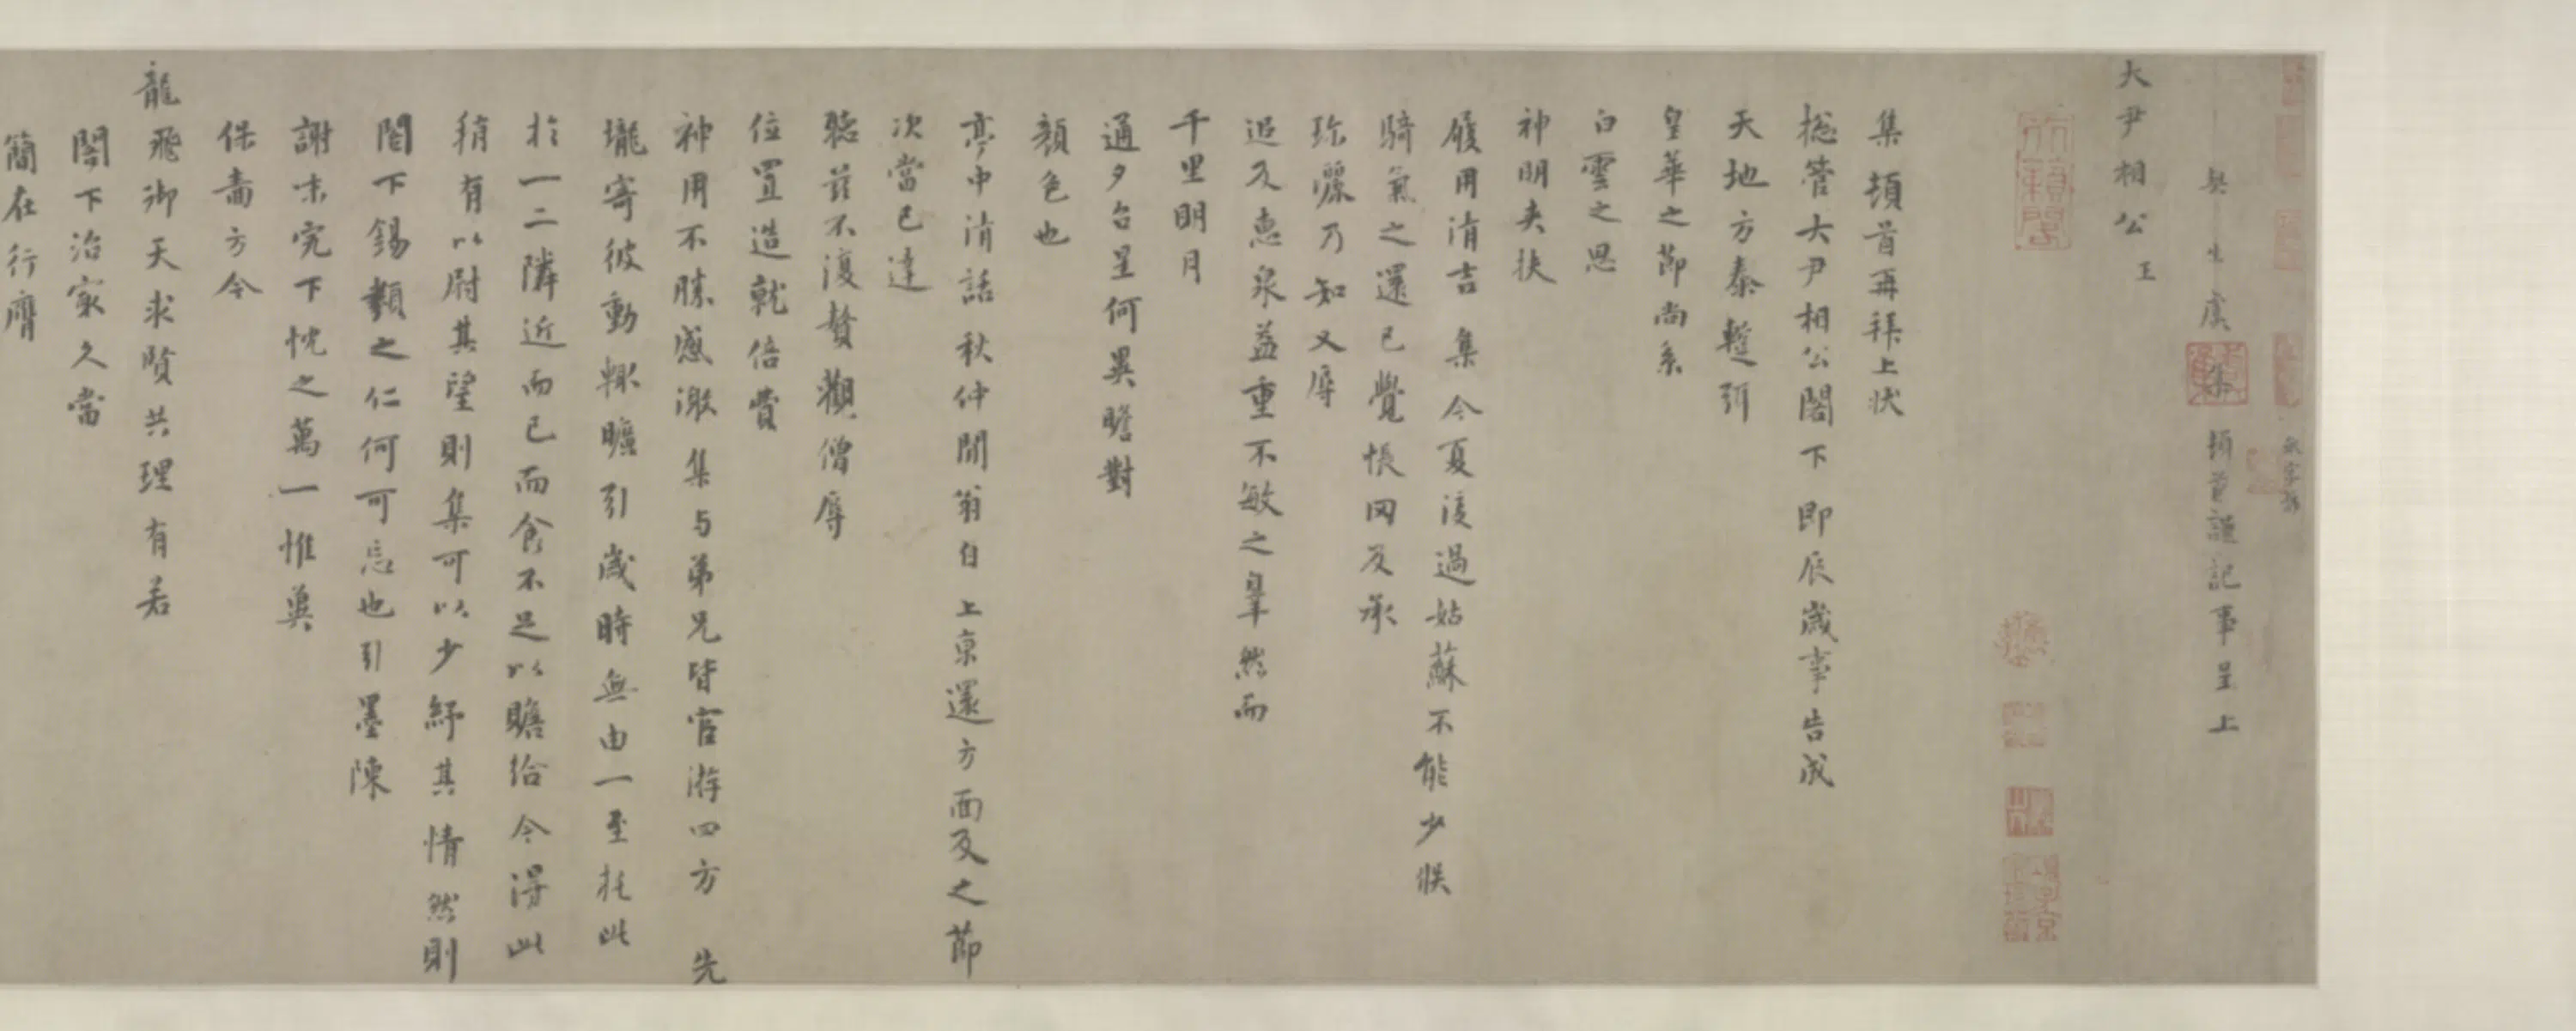 契生虞集頓首謹記事呈上
大尹相公
集頓首再拜上狀
總管大尹相公閣下即辰歲事告成
天地方泰暫弭
皇華之節尚系
白雲之思
神明夫扶
履用清吉集今夏後過姑蘇不能少俟
騎氣之還已覺悵罔及承
珍 乃知又辱
追及惠泉益重不敏之辠然而
千里明月
通夕台星何異瞻對
顏色也
亭中清話秋仲閒翁自上京還方面及之節
次當已達
聽茲不復贅觀僧辱
位置造就倍費
神用不勝感激集与弟兄皆宦游四方先
壠寄彼動輒曠引歲時無由一至托此
於一二隣近而已而食不足以贍給今得此
稍有以尉其望則集可以少紓其情然則
閣下錫類之仁何可忘也引墨陳
謝未究下忱之萬一惟冀
保嗇方今
龍飛御天求賢共理有若
閣下治家久當
簡在行膺